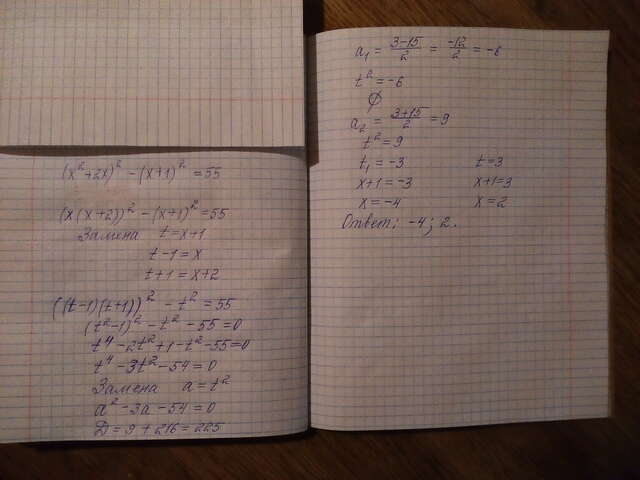 (x²+2x)² - (x+1)² = 55
(x(x+2))² - (x+1)² = 55
Замена t = x+1
t-1 = x
t+1 = x+2
((t-1)(t+1))² - t² = 55
(t²-1)² - t² - 55 = 0
t⁴ - 2t² + 1 - t² - 55 = 0
t⁴ - 3t² - 54 = 0
Замена a = t²
a² - 3a - 54 = 0
D = 9 + 216 = 225
a₁ = (3-15)/2 = -12/2 = -6
t² = -6
∅
a₂ = (3+15)/2 = 9
t² = 9
t₁ = -3 t = 3
x+1 = -3 x+1 = 3
x = -4 x = 2
Ответ: -4; 2.